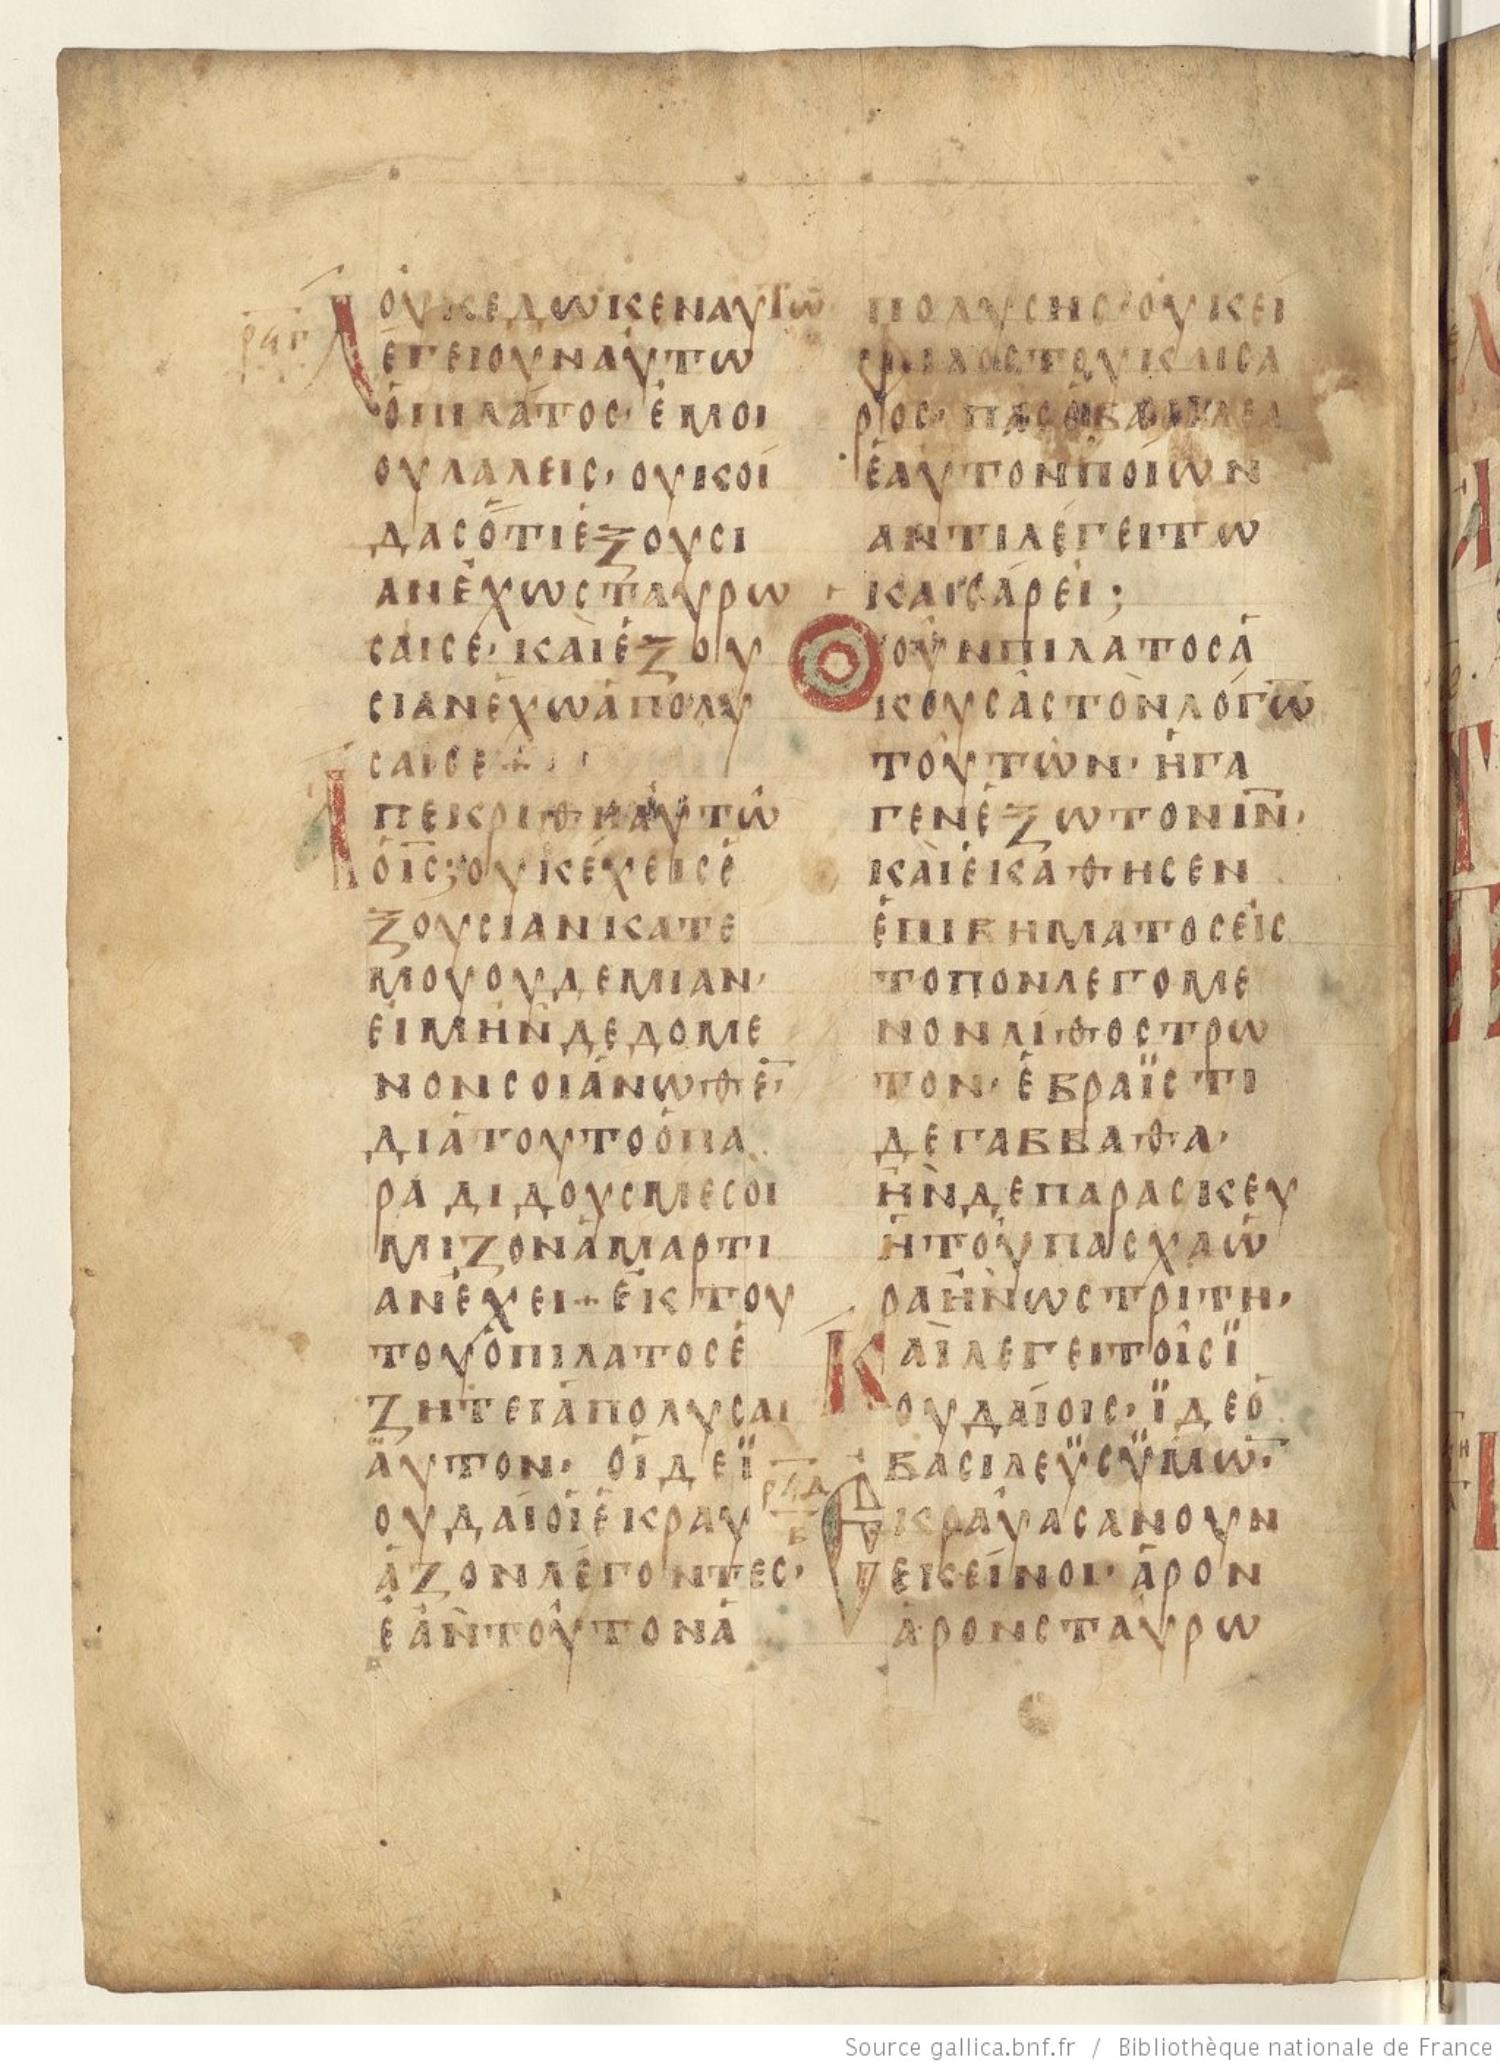 ΟΥΚ ΕΔΩΚΕΝ ΑΥΤΩ
ΡϤΓ
ΛΕΓΕΙ ΟΥΝ ΑΥΤΩ
Ὁ ΠΙΛΑΤΟΣ· ἘΜΟΙ
ΟΥ ΛΑΛΕΙΣ· ΟΥΚ ΟΙ
ΔΑΣ ὍΤΙ ἘΞΟΥΣΙ
ΑΝ ἘΧΩ ΣΤΑΥΡΩ
ΣΑΙ ΣΕ· ΚΑΙ ἘΞΟΥ
ΣΙΑΝ ἘΧΩ ἈΠΟΛΥ
ΣΑΙ ΣΕ +
ἈΠΕΚΡΙΘΗ ΑΥΤΩ
Ὁ ΙΣ· ΟΥΚ ἘΧΕΙΣ Ἐ
ΞΟΥΣΙΑΝ ΚΑΤ Ε
ΜΟΥ ΟΥΔΕΜΙΑΝ·
ΕΙ ΜΗ ΗΝ ΔΕΔΟΜΕ
ΝΟΝ ΣΟΙ ἈΝΩΘΕ̅·
ΔΙΑ ΤΟΥΤΟ Ὁ ΠΑ
ΡΑΔΙΔΟΥΣ ΜΕ ΣΟΙ
ΜΙΖΟΝ ἉΜΑΡΤΙ
ΑΝ ἘΧΕΙ + ἘΚ ΤΟΥ
ΤΟΥ Ὁ ΠΙΛΑΤΟΣ Ἐ
ΖΗΤΕΙ ἈΠΟΛΥΣΑΙ
ἈΥΤΟΝ· ΟΙ ΔΕ Ϊ
ΟΥΔΑΙΟΙ ἘΚΡΑΥ
ἈΖΟΝ ΛΕΓΟΝΤΕΣ·
ἘΑΝ ΤΟΥΤΟΝ Ἀ
ΠΟΛΥΣΗΣ· ΟΥΚ ΕΙ
ΦΙΛΟΣ ΤΟΥ ΚΑΙΣΑ
ΡΟΣ· ΠΑΣ Ὁ ΒΑΣΙΛΕΑ
ἙΑΥΤΟΝ ΠΟΙΩΝ
ΑΝΤΙΛΕΓΕΙ ΤΩ
ΚΑΙΣΑΡΕΙ ;
Ὁ ΟΥΝ ΠΙΛΑΤΟΣ Ἀ
ΚΟΥΣΑΣ ΤΟΝ ΛΟΓΩ̅
ΤΟΥΤΩΝ· ἨΓΑ
ΓΕΝ ἘΞΩ ΤΟΝ ΙΝ̅·
ΚΑΙ ἘΚΑΘΗΣΕΝ
ἘΠΙ ΒΗΜΑΤΟΣ ΕΙΣ
ΤΟΠΟΝ ΛΕΓΟΜΕ
ΝΟΝ ΛΙΘΟΣΤΡΩ
ΤΟΝ· ἙΒΡΑΪΣΤΙ
ΔΕ ΓΑΒΒΑΘΑ·
ΗΝ ΔΕ ΠΑΡΑΣΚΕΥ
Η ΤΟΥ ΠΑΣΧΑ Ὡ
ΡΑ ΗΝ ΩΣ ΤΡΙΤΗ·
ΚΑΙ ΛΕΓΕΙ ΤΟΙΣ Ϊ
ΟΥΔΑΙΟΙΣ· ΪΔΕ Ὁ
ΒΑΣΙΛΕΥΣ ΫΜΩ̅·
ΡϤΔ
Β
ΕΚΡΑΥΑΣΑΝ ΟΥΝ
ΕΚΕΙΝΟΙ· ἈΡΟΝ
ἈΡΟΝ ΣΤΑΥΡΩ
Source gallica.bnf.fr / Bibliothèque nationale de France